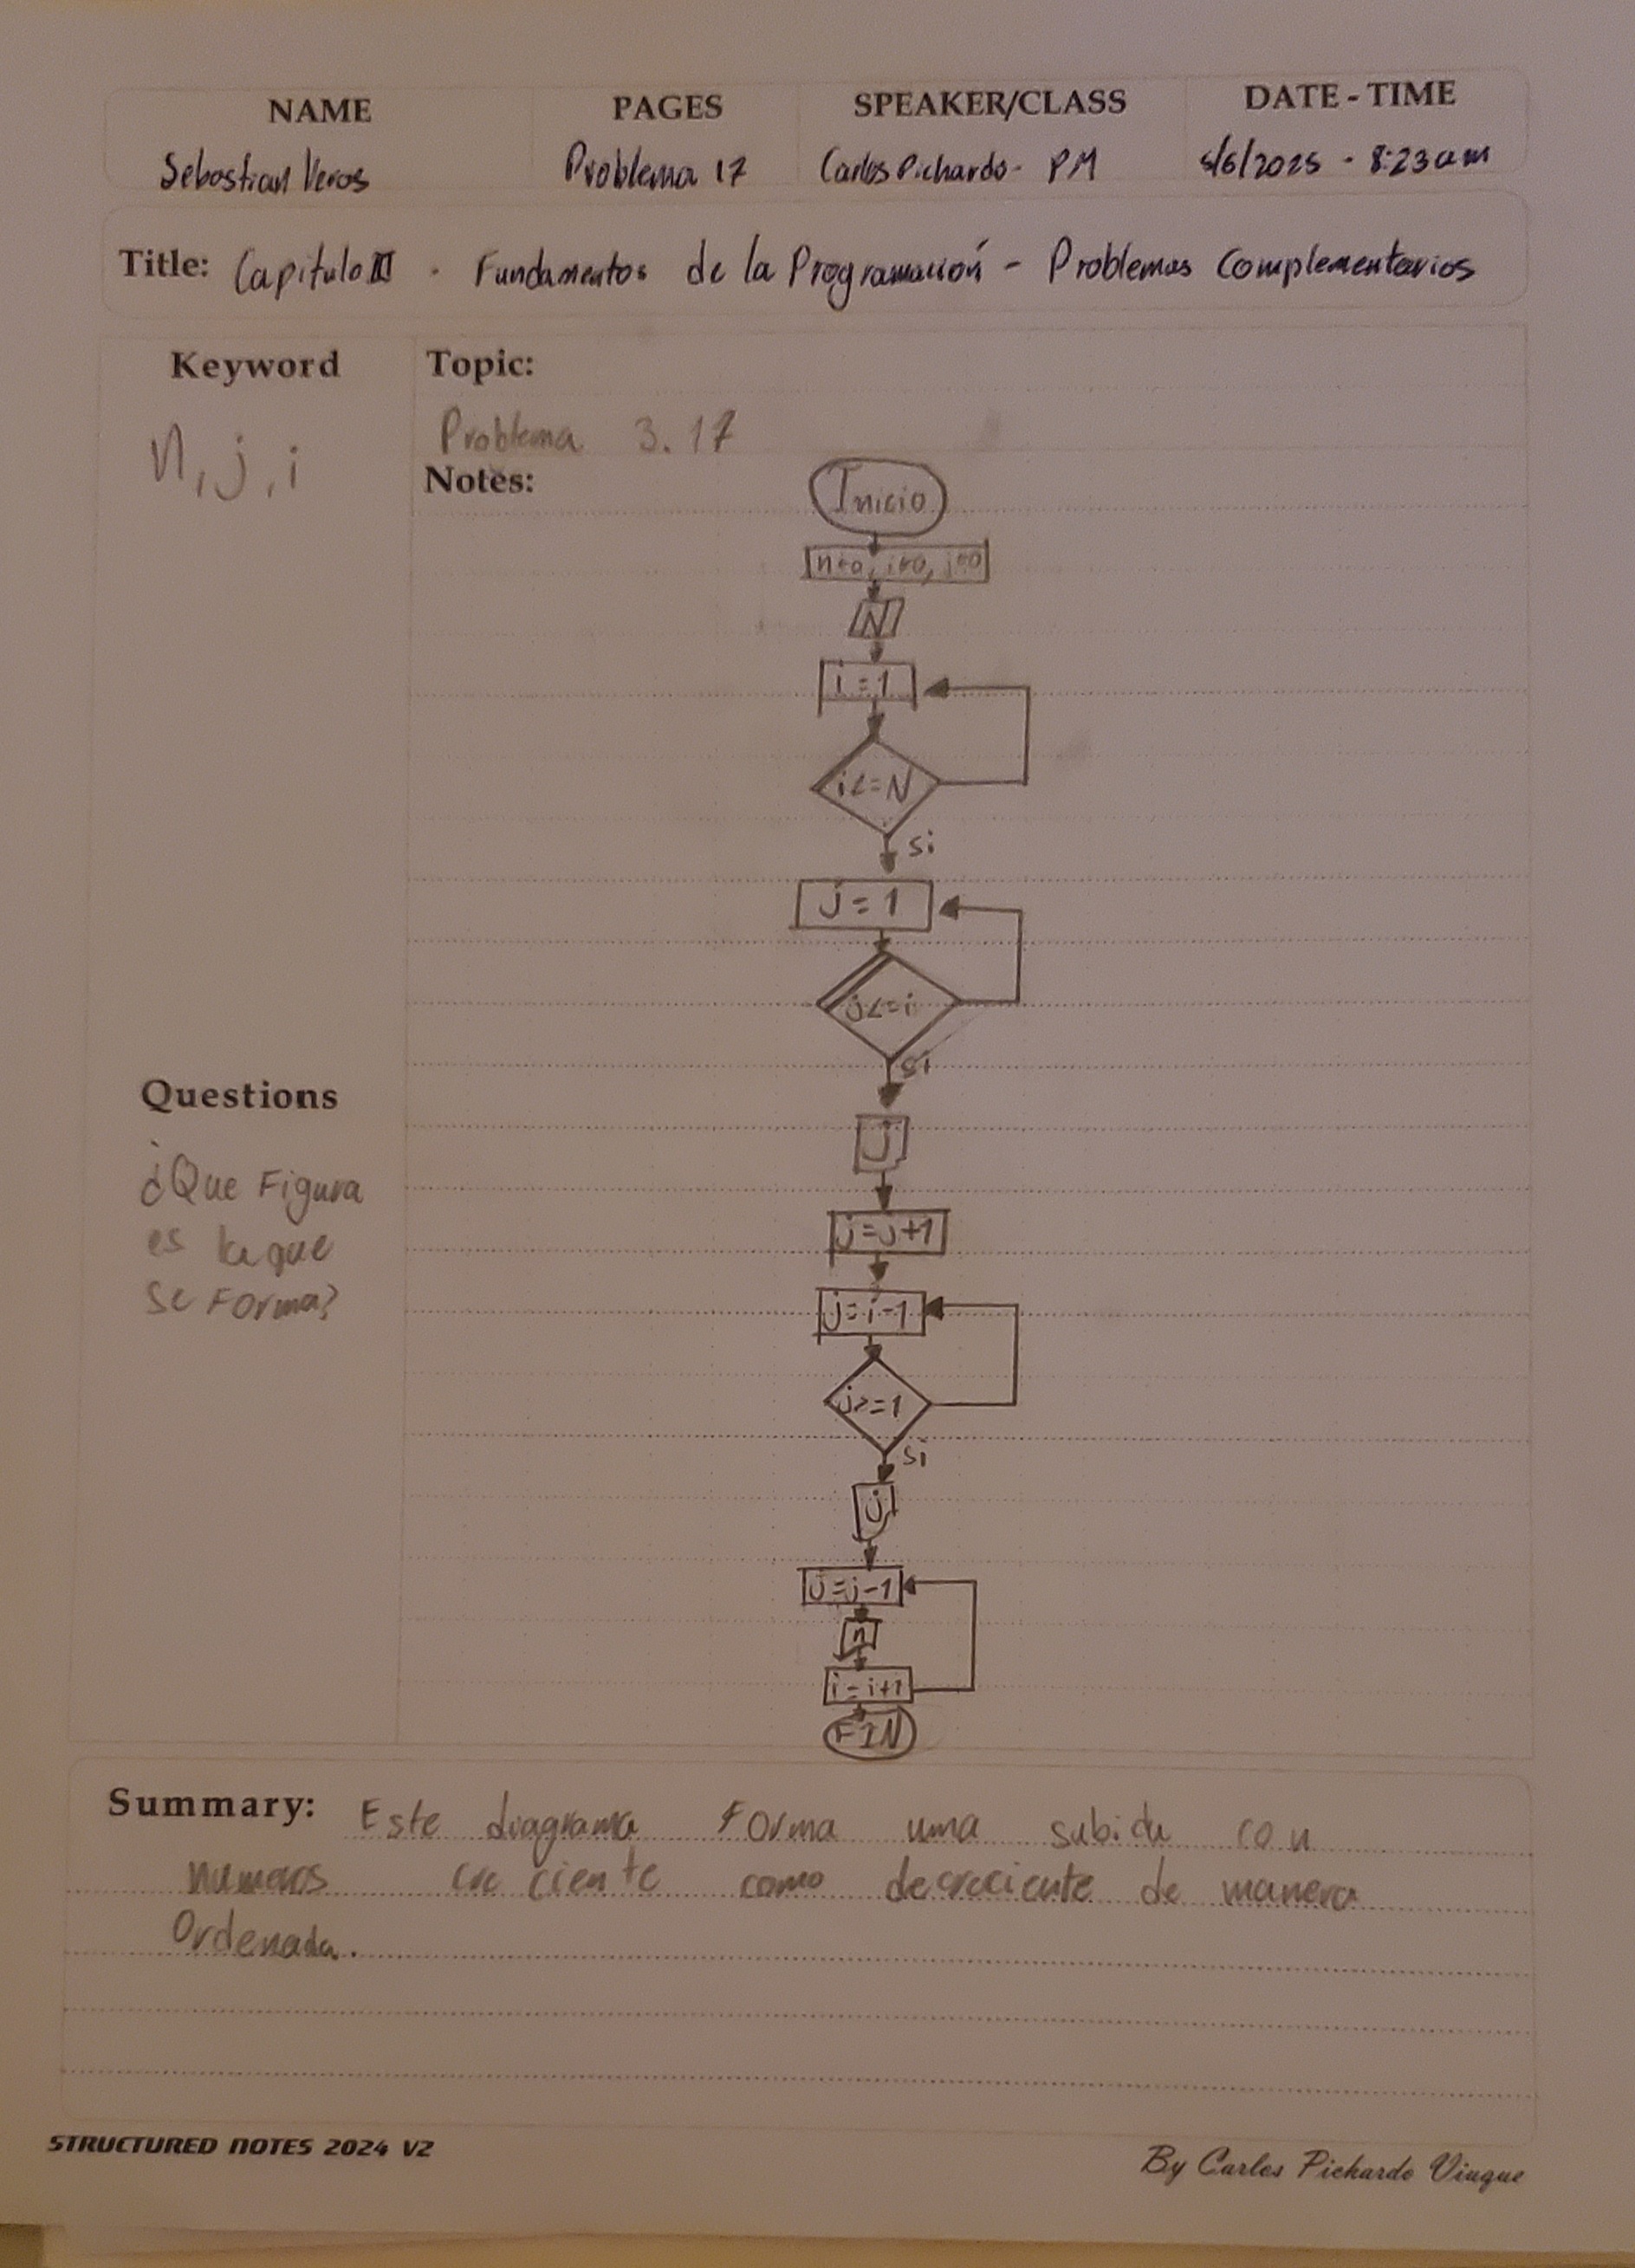 NAME PAGES SPEAKER/CLASS DATE - TIME
Sebastian Veras Problema 17 Carlos Pichardo - PM 5/6/2025 - 8:23am
Title: Capitulo III - Fundamentos de la Programación - Problemas Complementarios
Keyword
n, j, i
Topic:
Problema 3.17
Notes:
Inicio
n←0, i←0, j←0
N
i = 1
i<=N
si
j = 1
j<=i
si
j
j=j+1
j=i-1
j>=1
si
j
j=j-1
n
i=i+1
FIN
Questions
¿Que Figura
es la que
se Forma?
Summary: Este diagrama Forma una subida con
numeros creciente como decreciente de manera
Ordenada.
STRUCTURED NOTES 2024 V2
By Carlos Pichardo Viuque